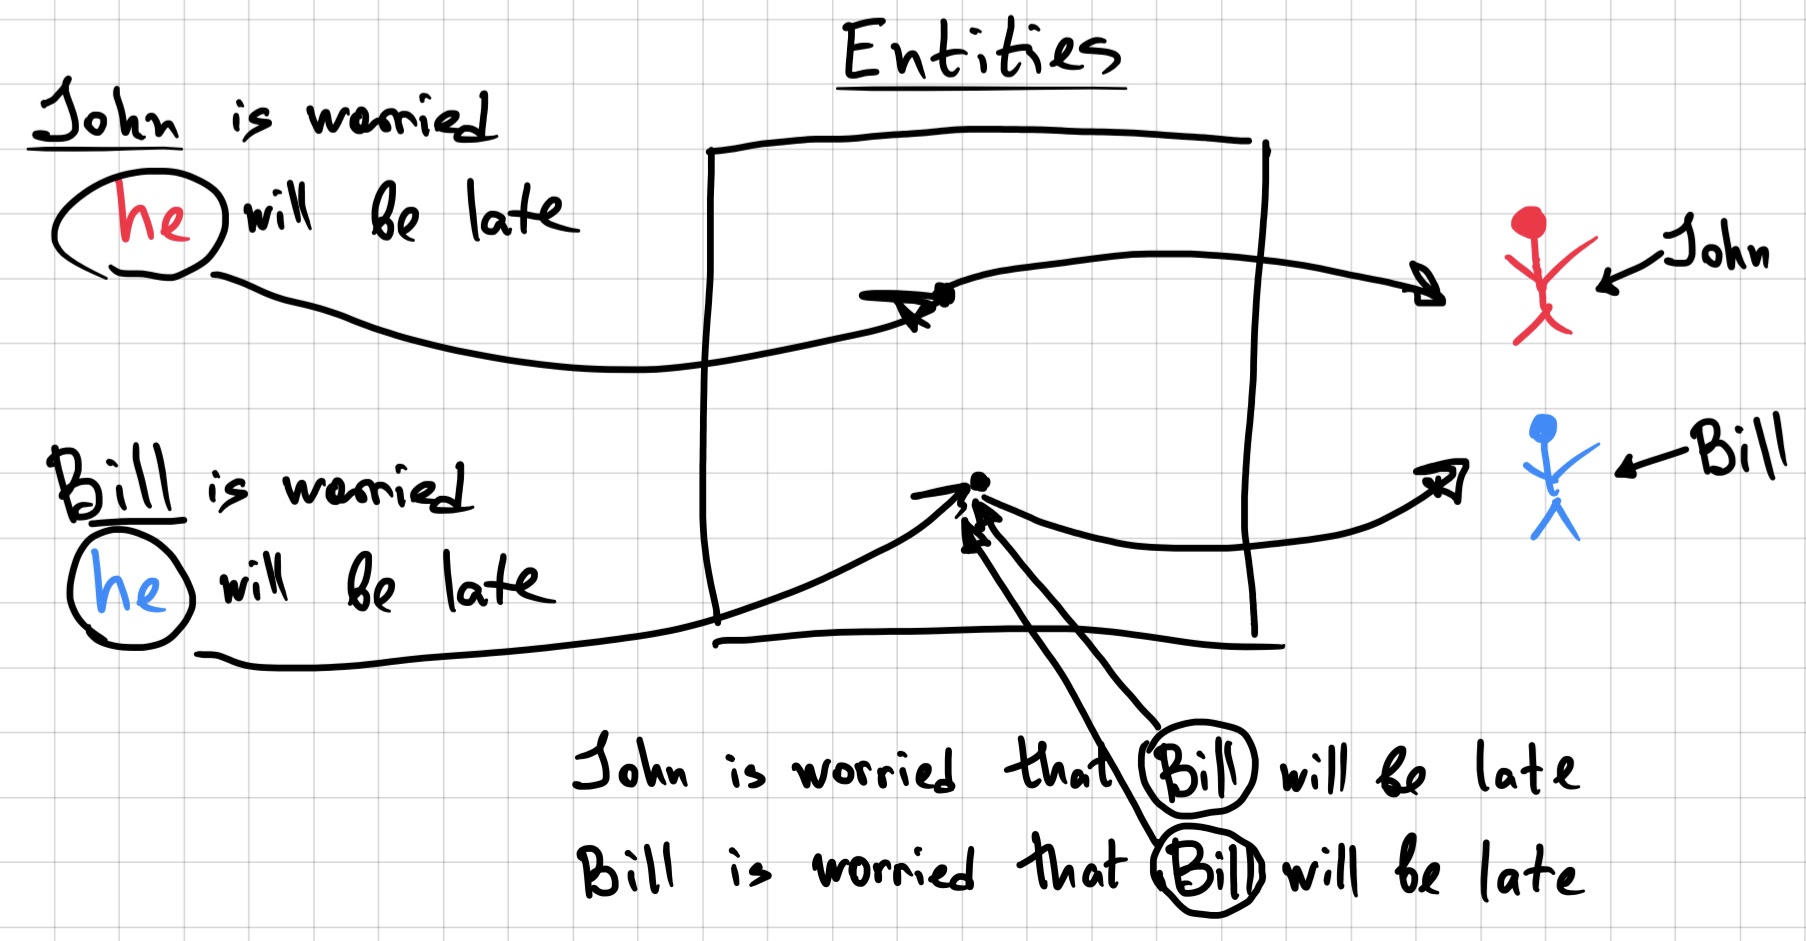 Entities
John is worried
he will be late
John
Bill is worried
he will be late
Bill
John is worried that Bill will be late
Bill is worried that Bill will be late